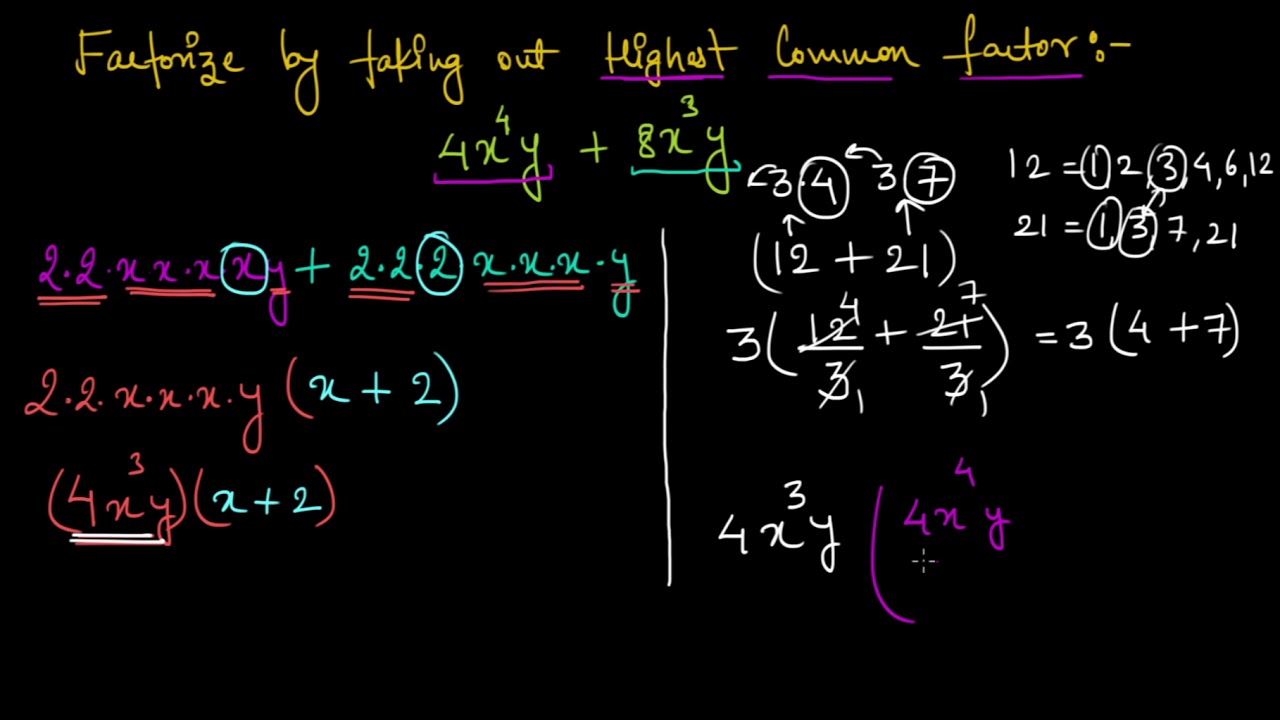 Factorize by taking out Highest Common factor:-
4x⁴y + 8x³y
2.2.x x.x x y + 2.2.2 x.x.x.y
2.2.x.x.x.y (x + 2)
(4x³y)(x + 2)
3.4 3 7
(12 + 21)
12 = 1 2, 3, 4, 6, 12
21 = 1, 3, 7, 21
3(12/3 + 21/3) = 3 (4 + 7)
4 7
1 1
4x³y (4x⁴y